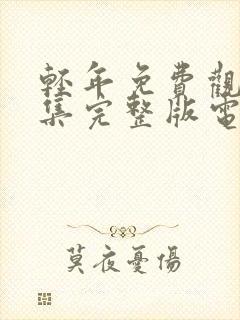 輕年免費觀
集完整版電
莫夜憂傷